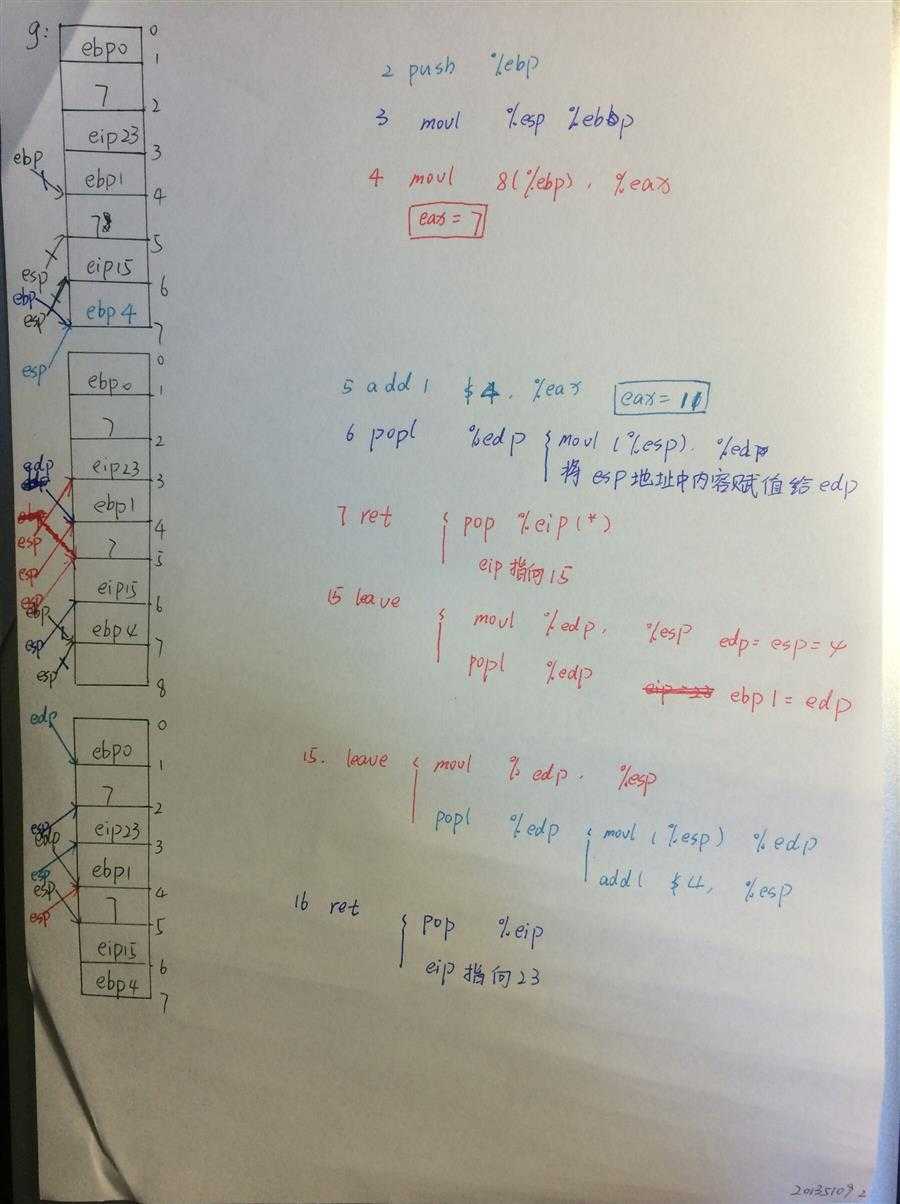 g:
0
ebp0
1
7
2
eip23
3
ebp
ebp1
4
7
5
esp
eip15
6
ebp
esp
ebp4
7
esp
2 push %ebp
3 movl %esp %ebp
4 movl 8(%ebp), %eax
eax = 7
0
ebp0
1
7
2
eip23
3
edp
ebp1
4
esp
7
5
esp
eip15
6
esp
ebp
ebp4
7
esp
esp
8
5 addl $4, %eax eax = 11
6 popl %edp { movl (%esp), %edp
将 esp 地址中内容赋值给 edp
7 ret { pop %eip(*)
eip 指向15
15 leave { movl %edp, %esp edp = esp = 4
popl %edp eip=23 ebp1 = edp
0
edp
ebp0
1
7
2
esp
eip23
edp
3
esp
ebp1
4
esp
7
esp
5
eip15
6
ebp4
7
15. leave { movl %edp, %esp
popl %edp { movl (%esp) %edp
addl $4, %esp
16 ret { pop %eip
eip 指向23